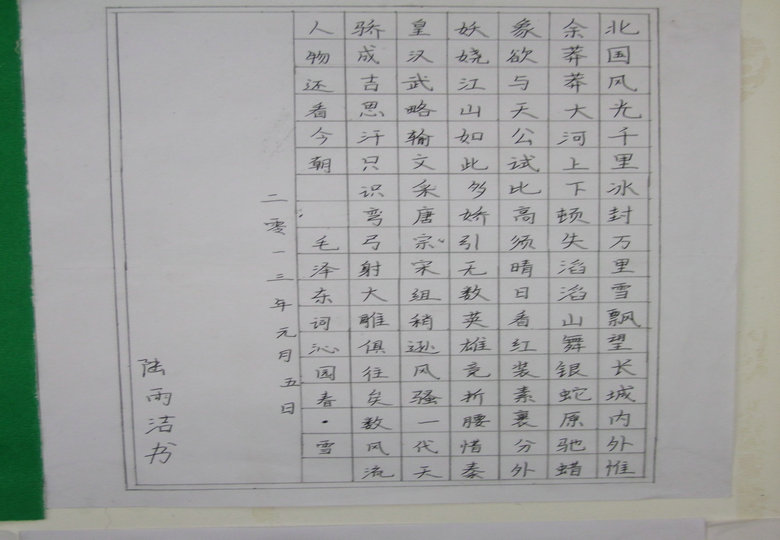 北国风光千里冰封万里雪飘望长城内外惟
余莽莽大河上下顿失滔滔山舞银蛇原驰蜡
象欲与天公试比高须晴日看红装素裹分外
妖娆江山如此多娇引无数英雄竞折腰惜秦
皇汉武略输文采唐宗宋组稍逊风骚一代天
骄成吉思汗只识弯弓射大雕俱往矣数风流
人物还看今朝 毛泽东词沁园春·雪
二零一三年元月五日
陆雨洁书